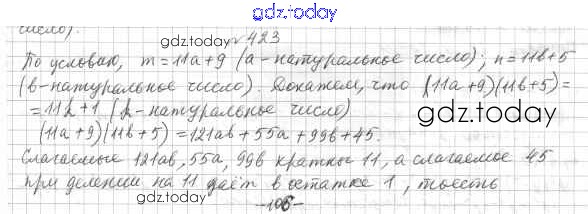 gdz.today
число).
gdz.today № 423
По условию, m = 11a + 9 (a - натуральное число); n = 11b + 5
(b - натуральное число). Докажем, что (11a + 9)(11b + 5) =
= 11k + 1 (k - натуральное число)
gdz.today
(11a + 9)(11b + 5) = 121ab + 55a + 99b + 45.
Слагаемые 121ab, 55a, 99b кратны 11, а слагаемое 45
при делении на 11 даёт в остатке 1, то есть
gdz.today
-106-